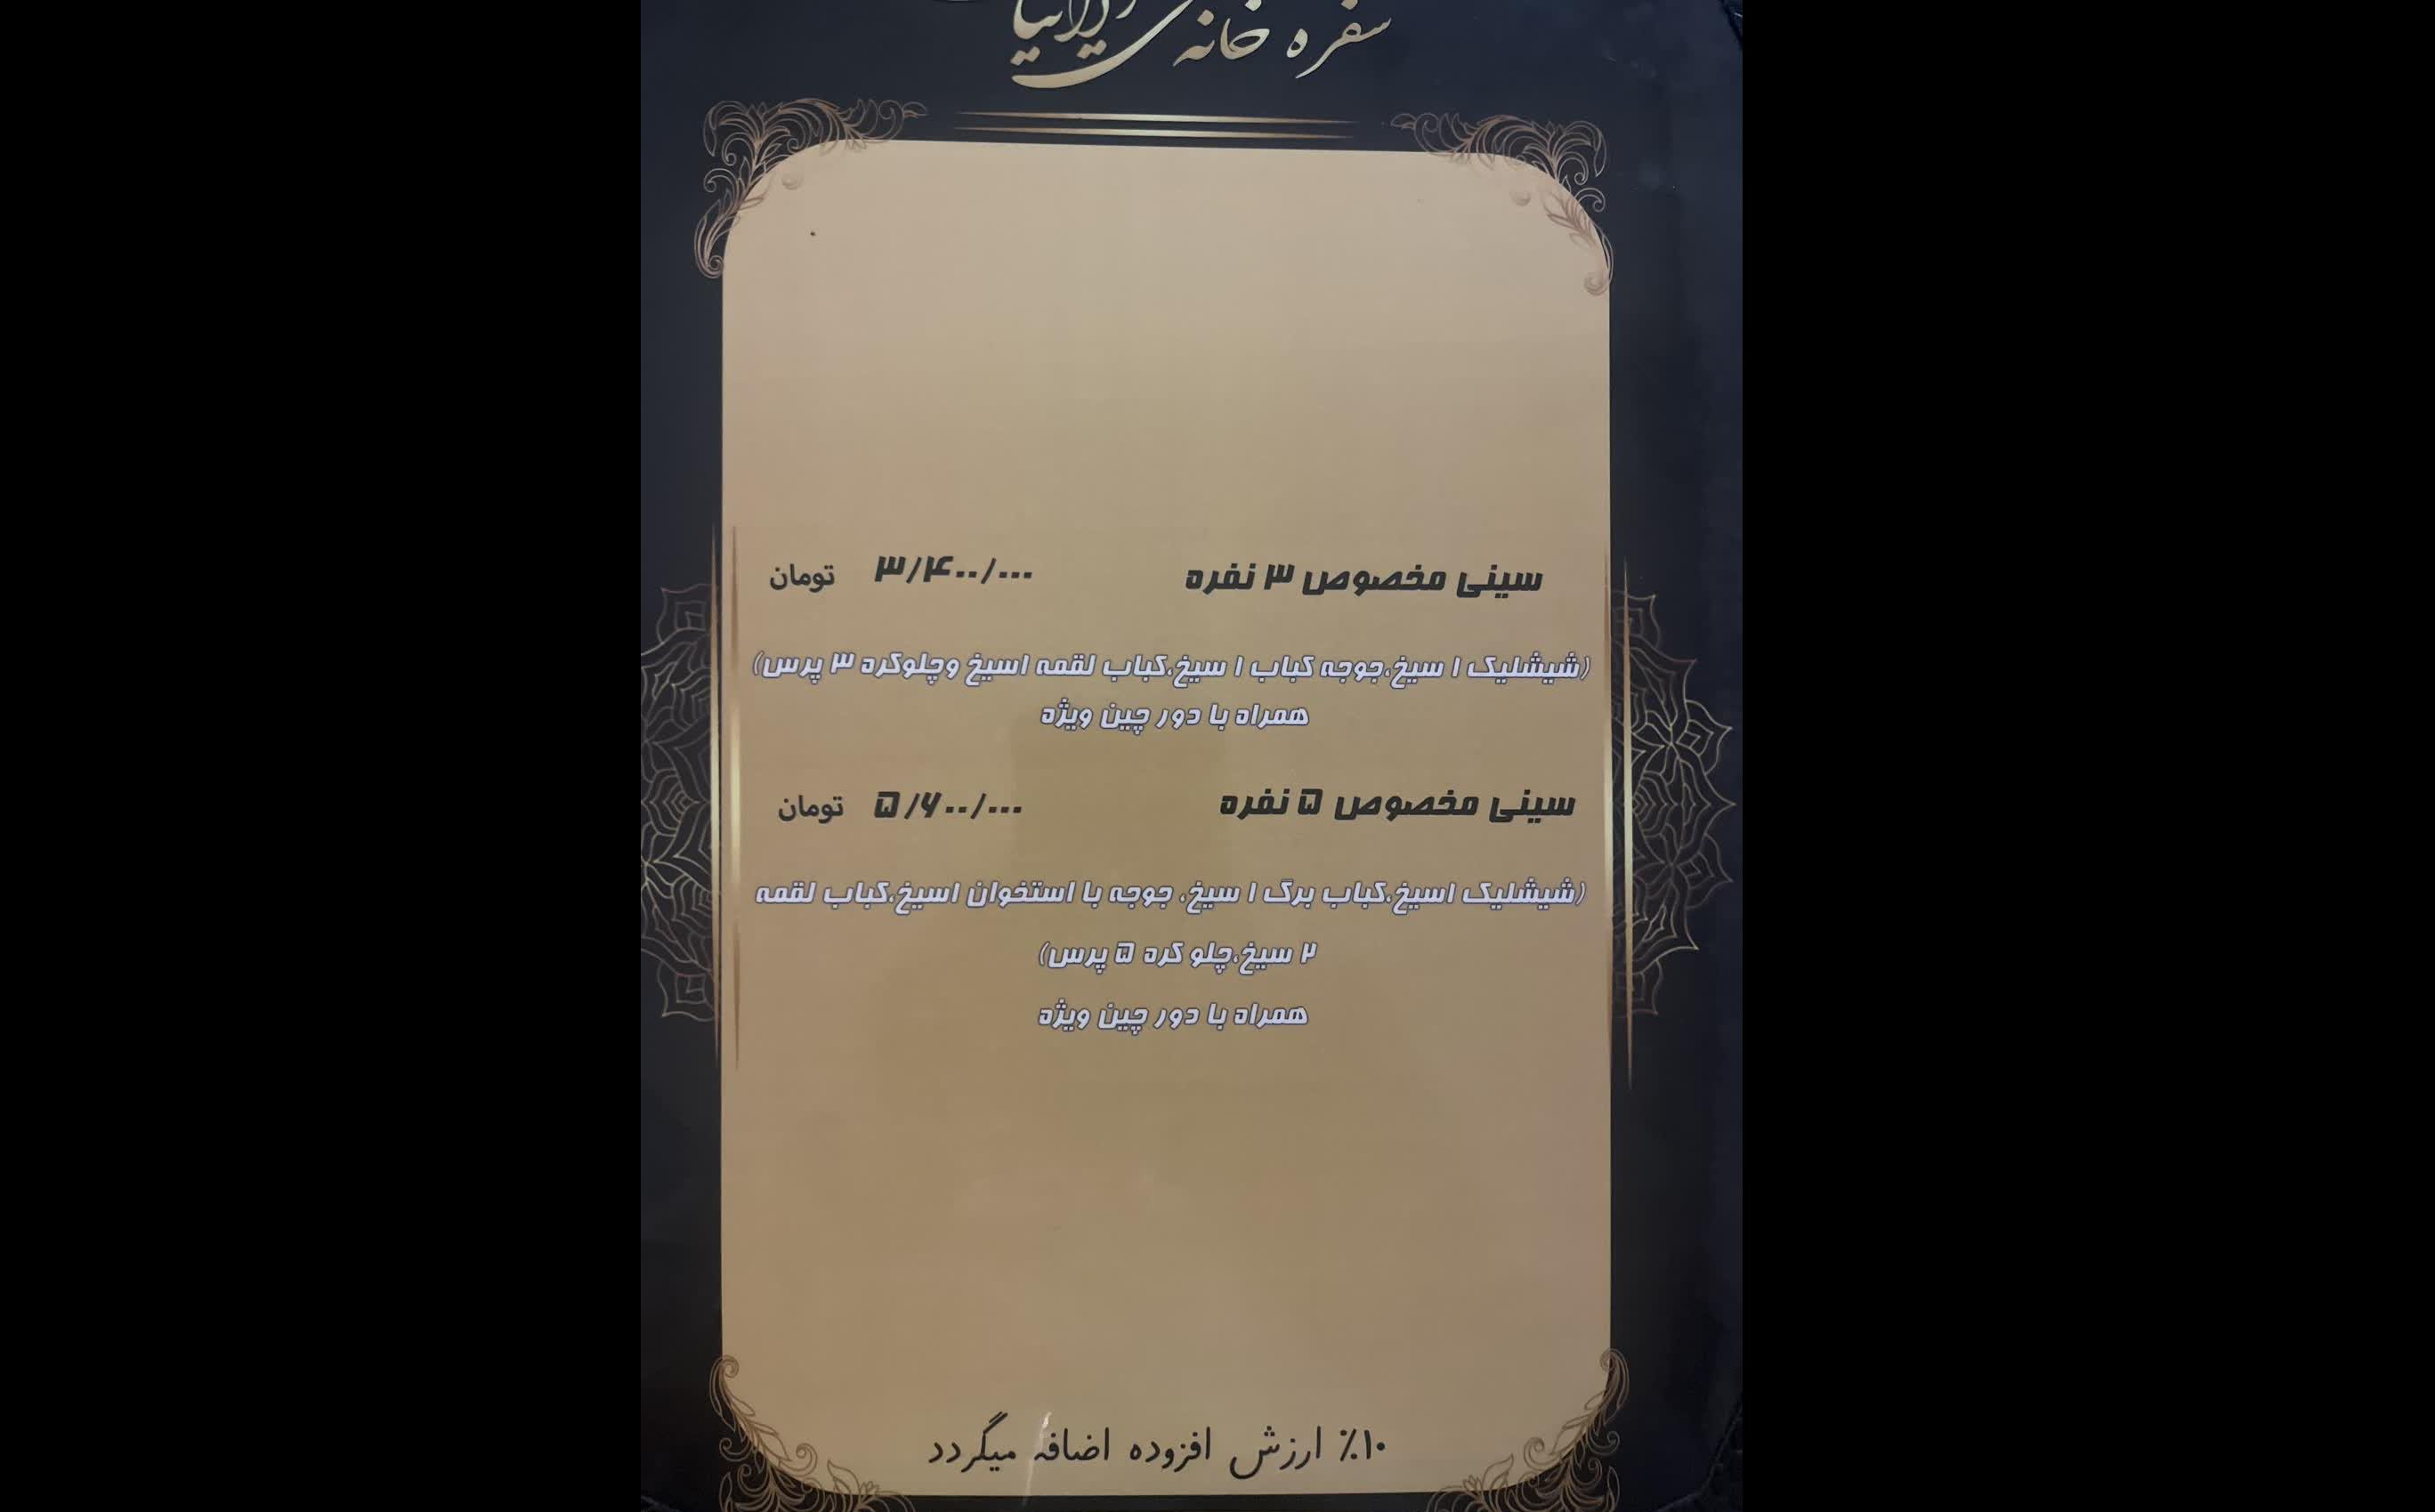 سفره خانه ی
سینی مخصوص ۳ نفره ۳/۴۰۰/۰۰۰ تومان
(شیشلیک ۱ سیخ،جوجه کباب ۱ سیخ،کباب لقمه ۱سیخ وچلوکره ۳ پرس)
همراه با دور چین ویژه
سینی مخصوص ۵ نفره ۵/۶۰۰/۰۰۰ تومان
(شیشلیک ۱سیخ،کباب برگ ۱ سیخ، جوجه با استخوان ۱سیخ،کباب لقمه
۲ سیخ،چلو کره ۵ پرس)
همراه با دور چین ویژه
۱۰٪ ارزش افزوده اضافه میگردد